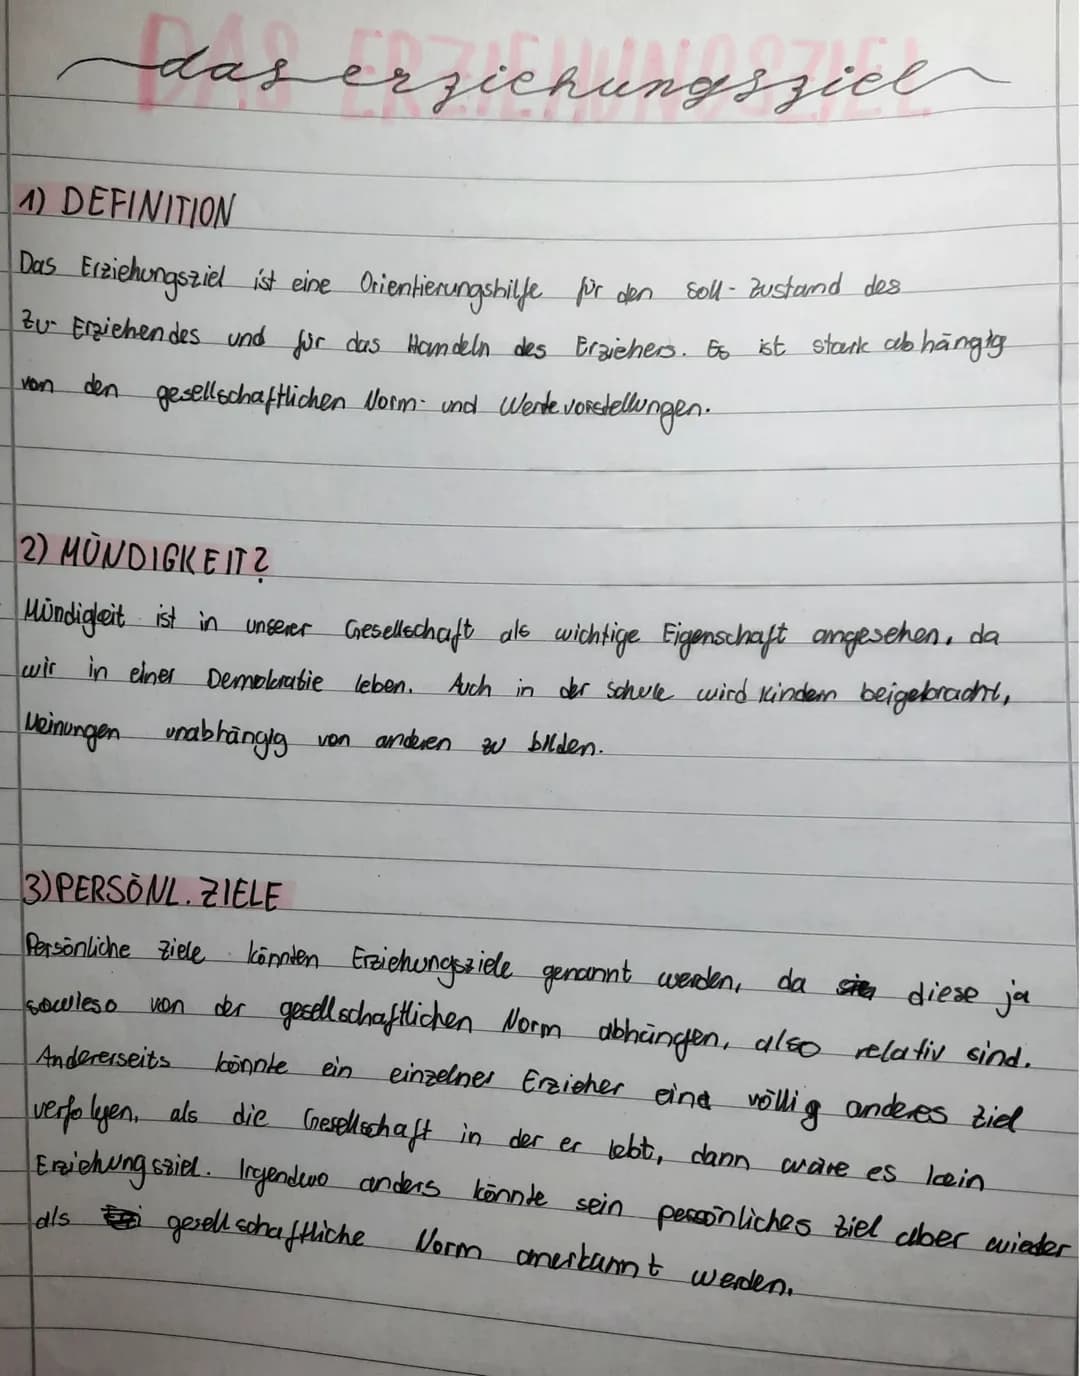 DAS ERZIEHUNGSZIEL
das erziehungsziel
1) DEFINITION
Das Erziehungsziel ist eine Orientierungshilfe für den Soll-Zustand des
Zu-Erziehendes und für das Handeln des Erziehers. Es ist stark abhängig
von den gesellschaftlichen Norm- und Wertevorstellungen.
2) MÜNDIGKEIT?
Mündigkeit ist in unserer Gesellschaft als wichtige Eigenschaft angesehen, da
wir in einer Demokratie leben. Auch in der Schule wird Kindern beigebracht,
Meinungen unabhängig von anderen zu bilden.
3) PERSÖNL. ZIELE
Persönliche Ziele könnten Erziehungsziele genannt werden, da diese ja
sowieso von der gesellschaftlichen Norm abhängen, also relativ sind.
Andererseits könnte ein einzelner Erzieher eine völlig anderes Ziel
verfolgen, als die Gesellschaft in der er lebt, dann wäre es kein
Erziehungsziel. Irgendwo anders könnte sein persönliches Ziel aber wieder
als gesellschaftliche Norm anerkannt werden.